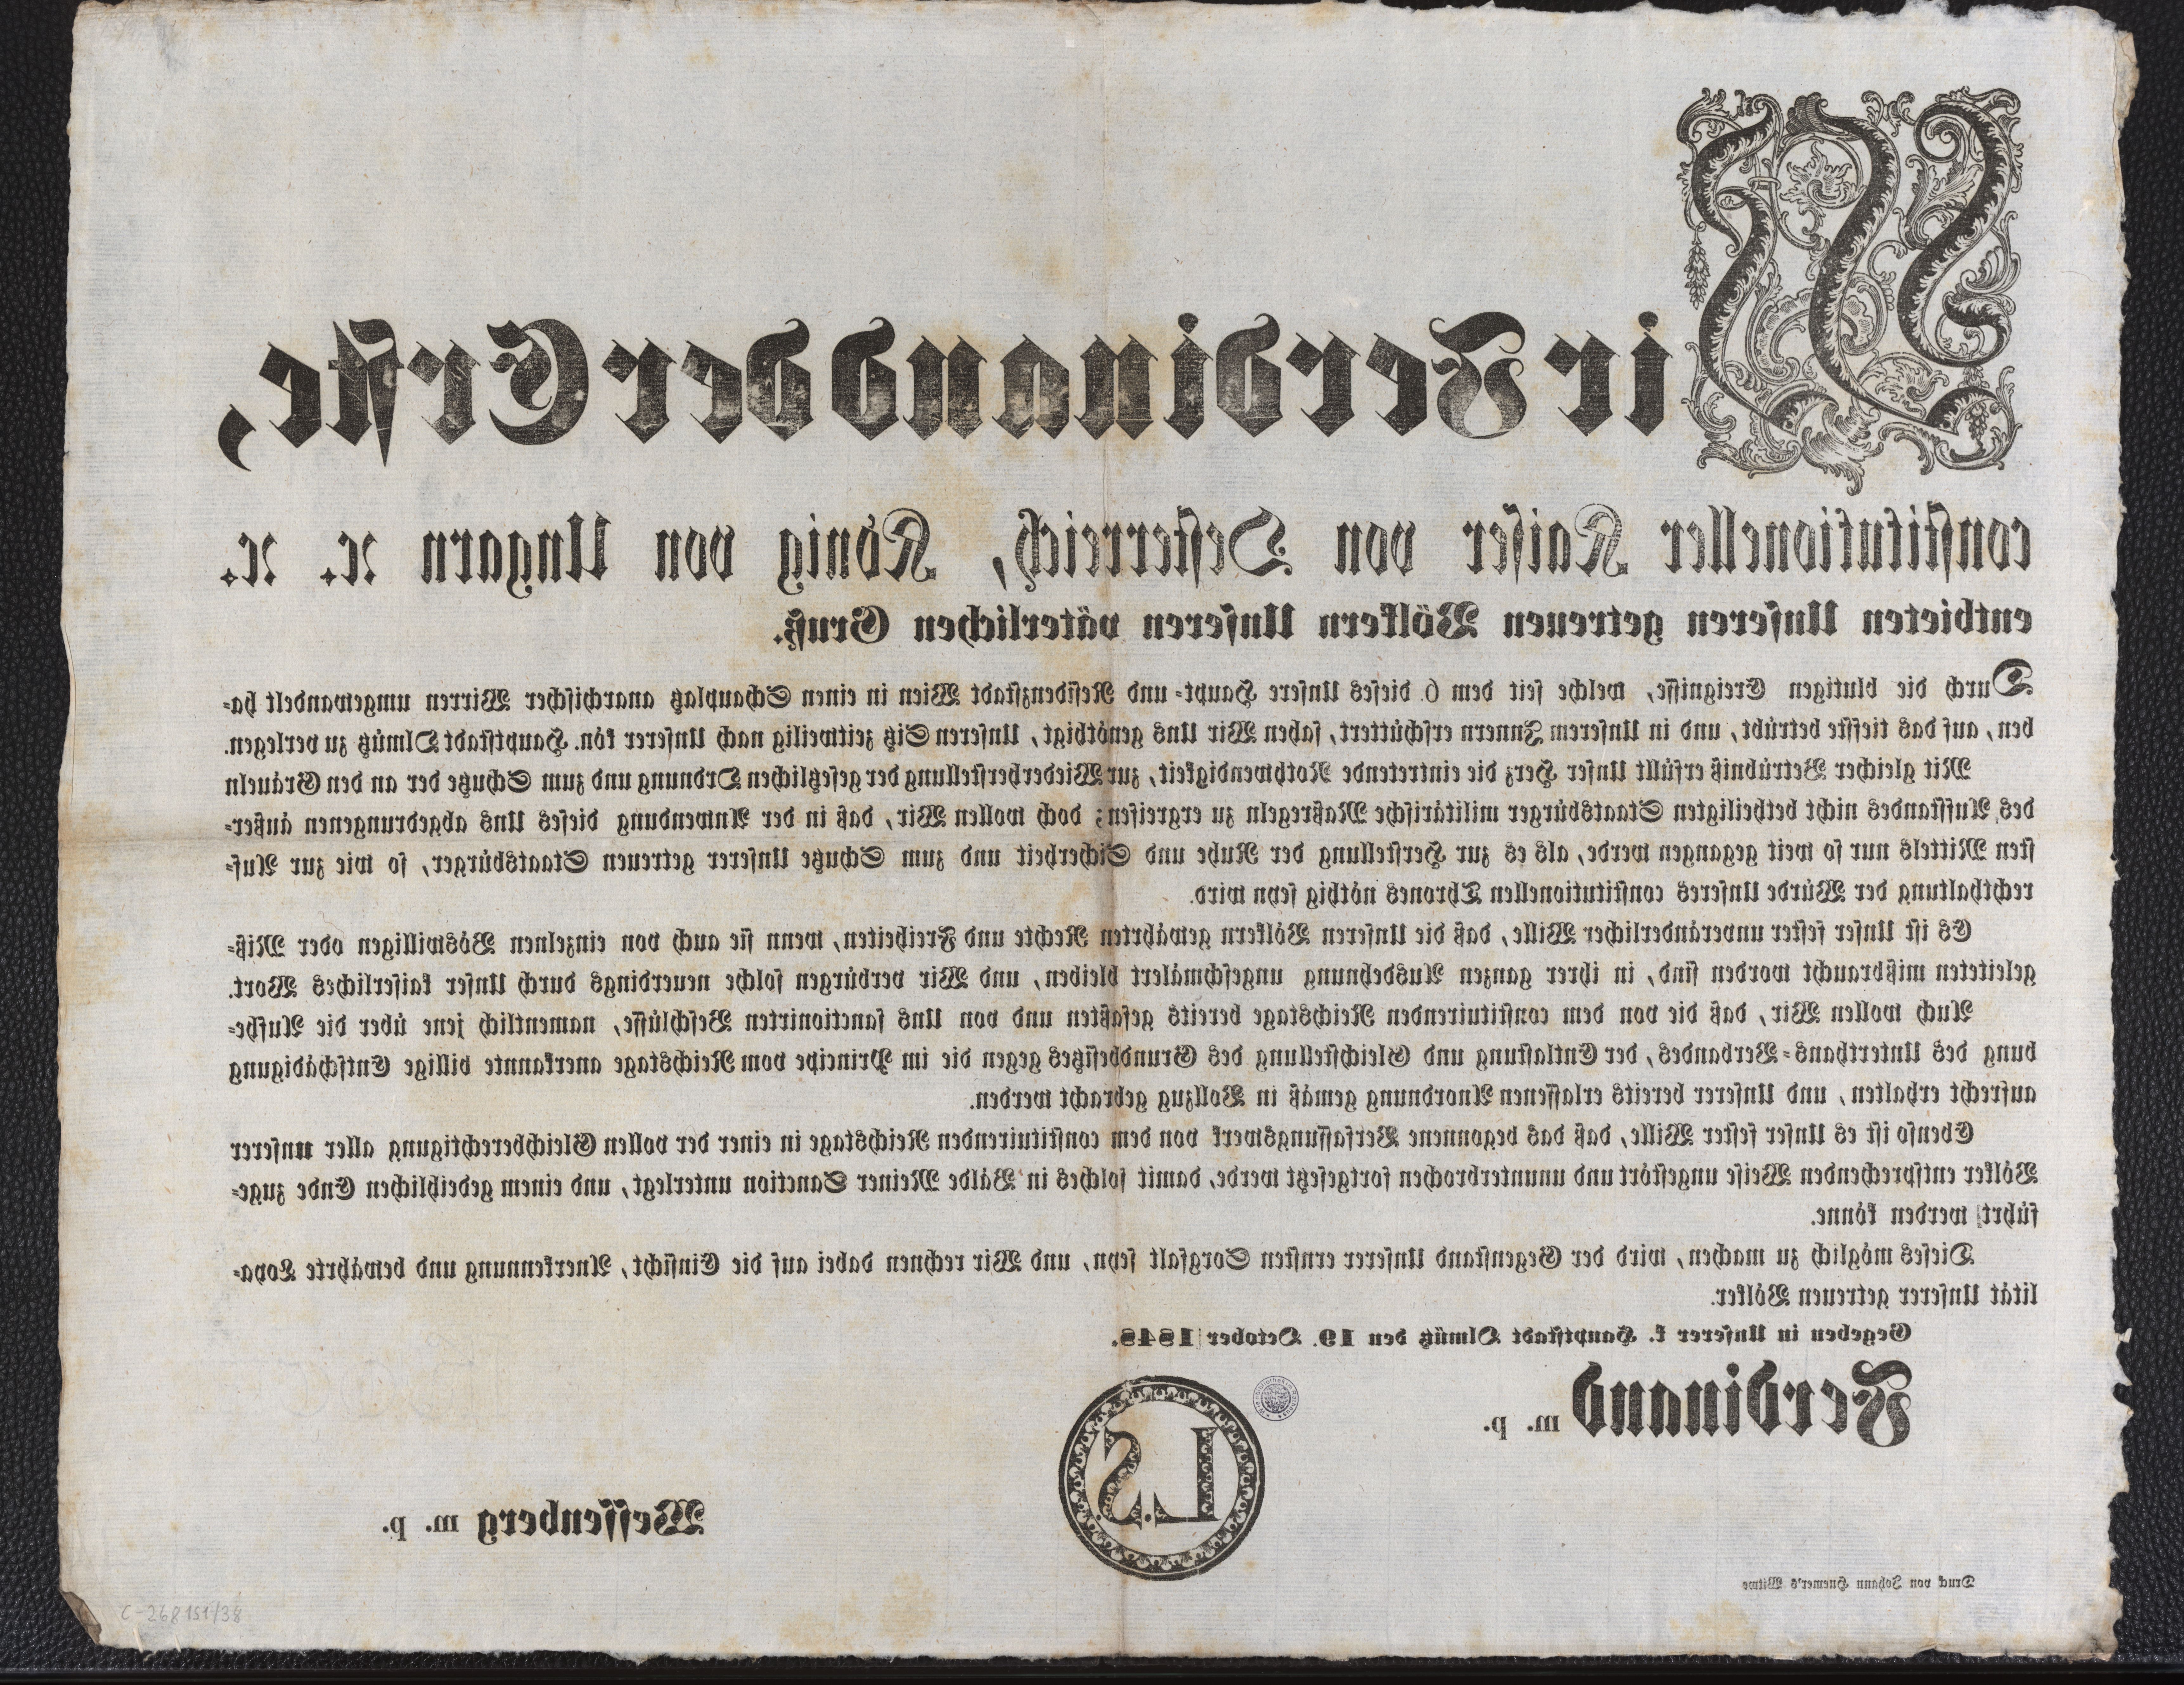 Wir Ferdinand der Erste,
constitutioneller Kaiser von Oesterreich, König von Ungarn ꝛc. ꝛc.
entbieten Unseren getreuen Völkern Unseren väterlichen Gruß.
Durch die blutigen Ereignisse, welche seit dem 6. dieses Unsere Haupt- und Residenzstadt Wien in einen Schauplatz anarchischer Wirren umgewandelt ha-
ben, auf das tiefste betrübt, und in Unserem Innern erschüttert, sahen Wir Uns genöthigt, Unseren Sitz zeitweilig nach Unserer kön. Hauptstadt Olmütz zu verlegen.
Mit gleicher Betrübniß erfüllt Unser Herz die eintretende Nothwendigkeit, zur Wiederherstellung der gesetzlichen Ordnung und zum Schutze der an den Gräueln
des Aufstandes nicht betheiligten Staatsbürger militärische Maßregeln zu ergreifen; doch wollen Wir, daß in der Anwendung dieses Uns abgedrungenen äußer-
sten Mittels nur so weit gegangen werde, als es zur Herstellung der Ruhe und Sicherheit und zum Schutze Unserer getreuen Staatsbürger, so wie zur Auf-
rechthaltung der Würde Unseres constitutionellen Thrones nöthig seyn wird.
Es ist Unser fester unveränderlicher Wille, daß die Unseren Völkern gewährten Rechte und Freiheiten, wenn sie auch von einzelnen Böswilligen oder Miß-
geleiteten mißbraucht worden sind, in ihrer ganzen Ausdehnung ungeschmälert bleiben, und Wir verbürgen solche neuerdings durch Unser kaiserliches Wort.
Auch wollen Wir, daß die von dem constituirenden Reichstage bereits gefaßten und von Uns sanctionirten Beschlüsse, namentlich jene über die Aufhe-
bung des Unterthans-Verbandes, der Entlastung und Gleichstellung des Grundbesitzes gegen die im Principe vom Reichstage anerkannte billige Entschädigung
aufrecht erhalten, und Unserer bereits erlassenen Anordnung gemäß in Vollzug gebracht werden.
Ebenso ist es Unser fester Wille, daß das begonnene Verfassungswerk von dem constituirenden Reichstage in einer der vollen Gleichberechtigung aller unserer
Völker entsprechenden Weise ungestört und ununterbrochen fortgesetzt werde, damit solches in Bälde Meiner Sanction unterlegt, und einem gedeihlichen Ende zuge-
führt werden könne.
Dieses möglich zu machen, wird der Gegenstand Unserer ernsten Sorgfalt seyn, und Wir rechnen dabei auf die Einsicht, Anerkennung und bewährte Loya-
lität Unserer getreuen Völker.
Gegeben in Unserer k. Hauptstadt Olmütz den 19. October 1848.
Ferdinand m. p.
L. S.
Wessenberg m. p.
Druck von Johann Huemer's Witwe
C-268151/38